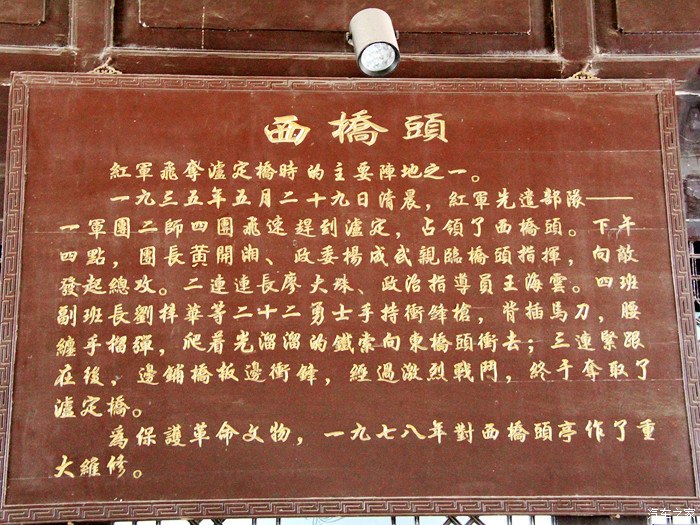 西橋頭
紅軍飛奪瀘定橋時的主要陣地之一。
一九三五年五月二十九日清晨，紅軍先遣部隊——
一軍團二師四團飛速趕到瀘定，占領了西橋頭。下午
四點，團長黄開湘、政委楊成武親臨橋頭指揮，向敵
發起總攻。二連連長廖大珠、政治指導員王海雲。四班
副班長劉梓華等二十二勇士手持衝鋒槍，背插馬刀，腰
纏手榴彈，爬着光溜溜的鐵索向東橋頭衝去；三連緊跟
在後，邊鋪橋板邊衝鋒，經過激烈戰鬥，終于奪取了
瀘定橋。
爲保護革命文物，一九七八年對西橋頭亭作了重
大維修。
汽车之家